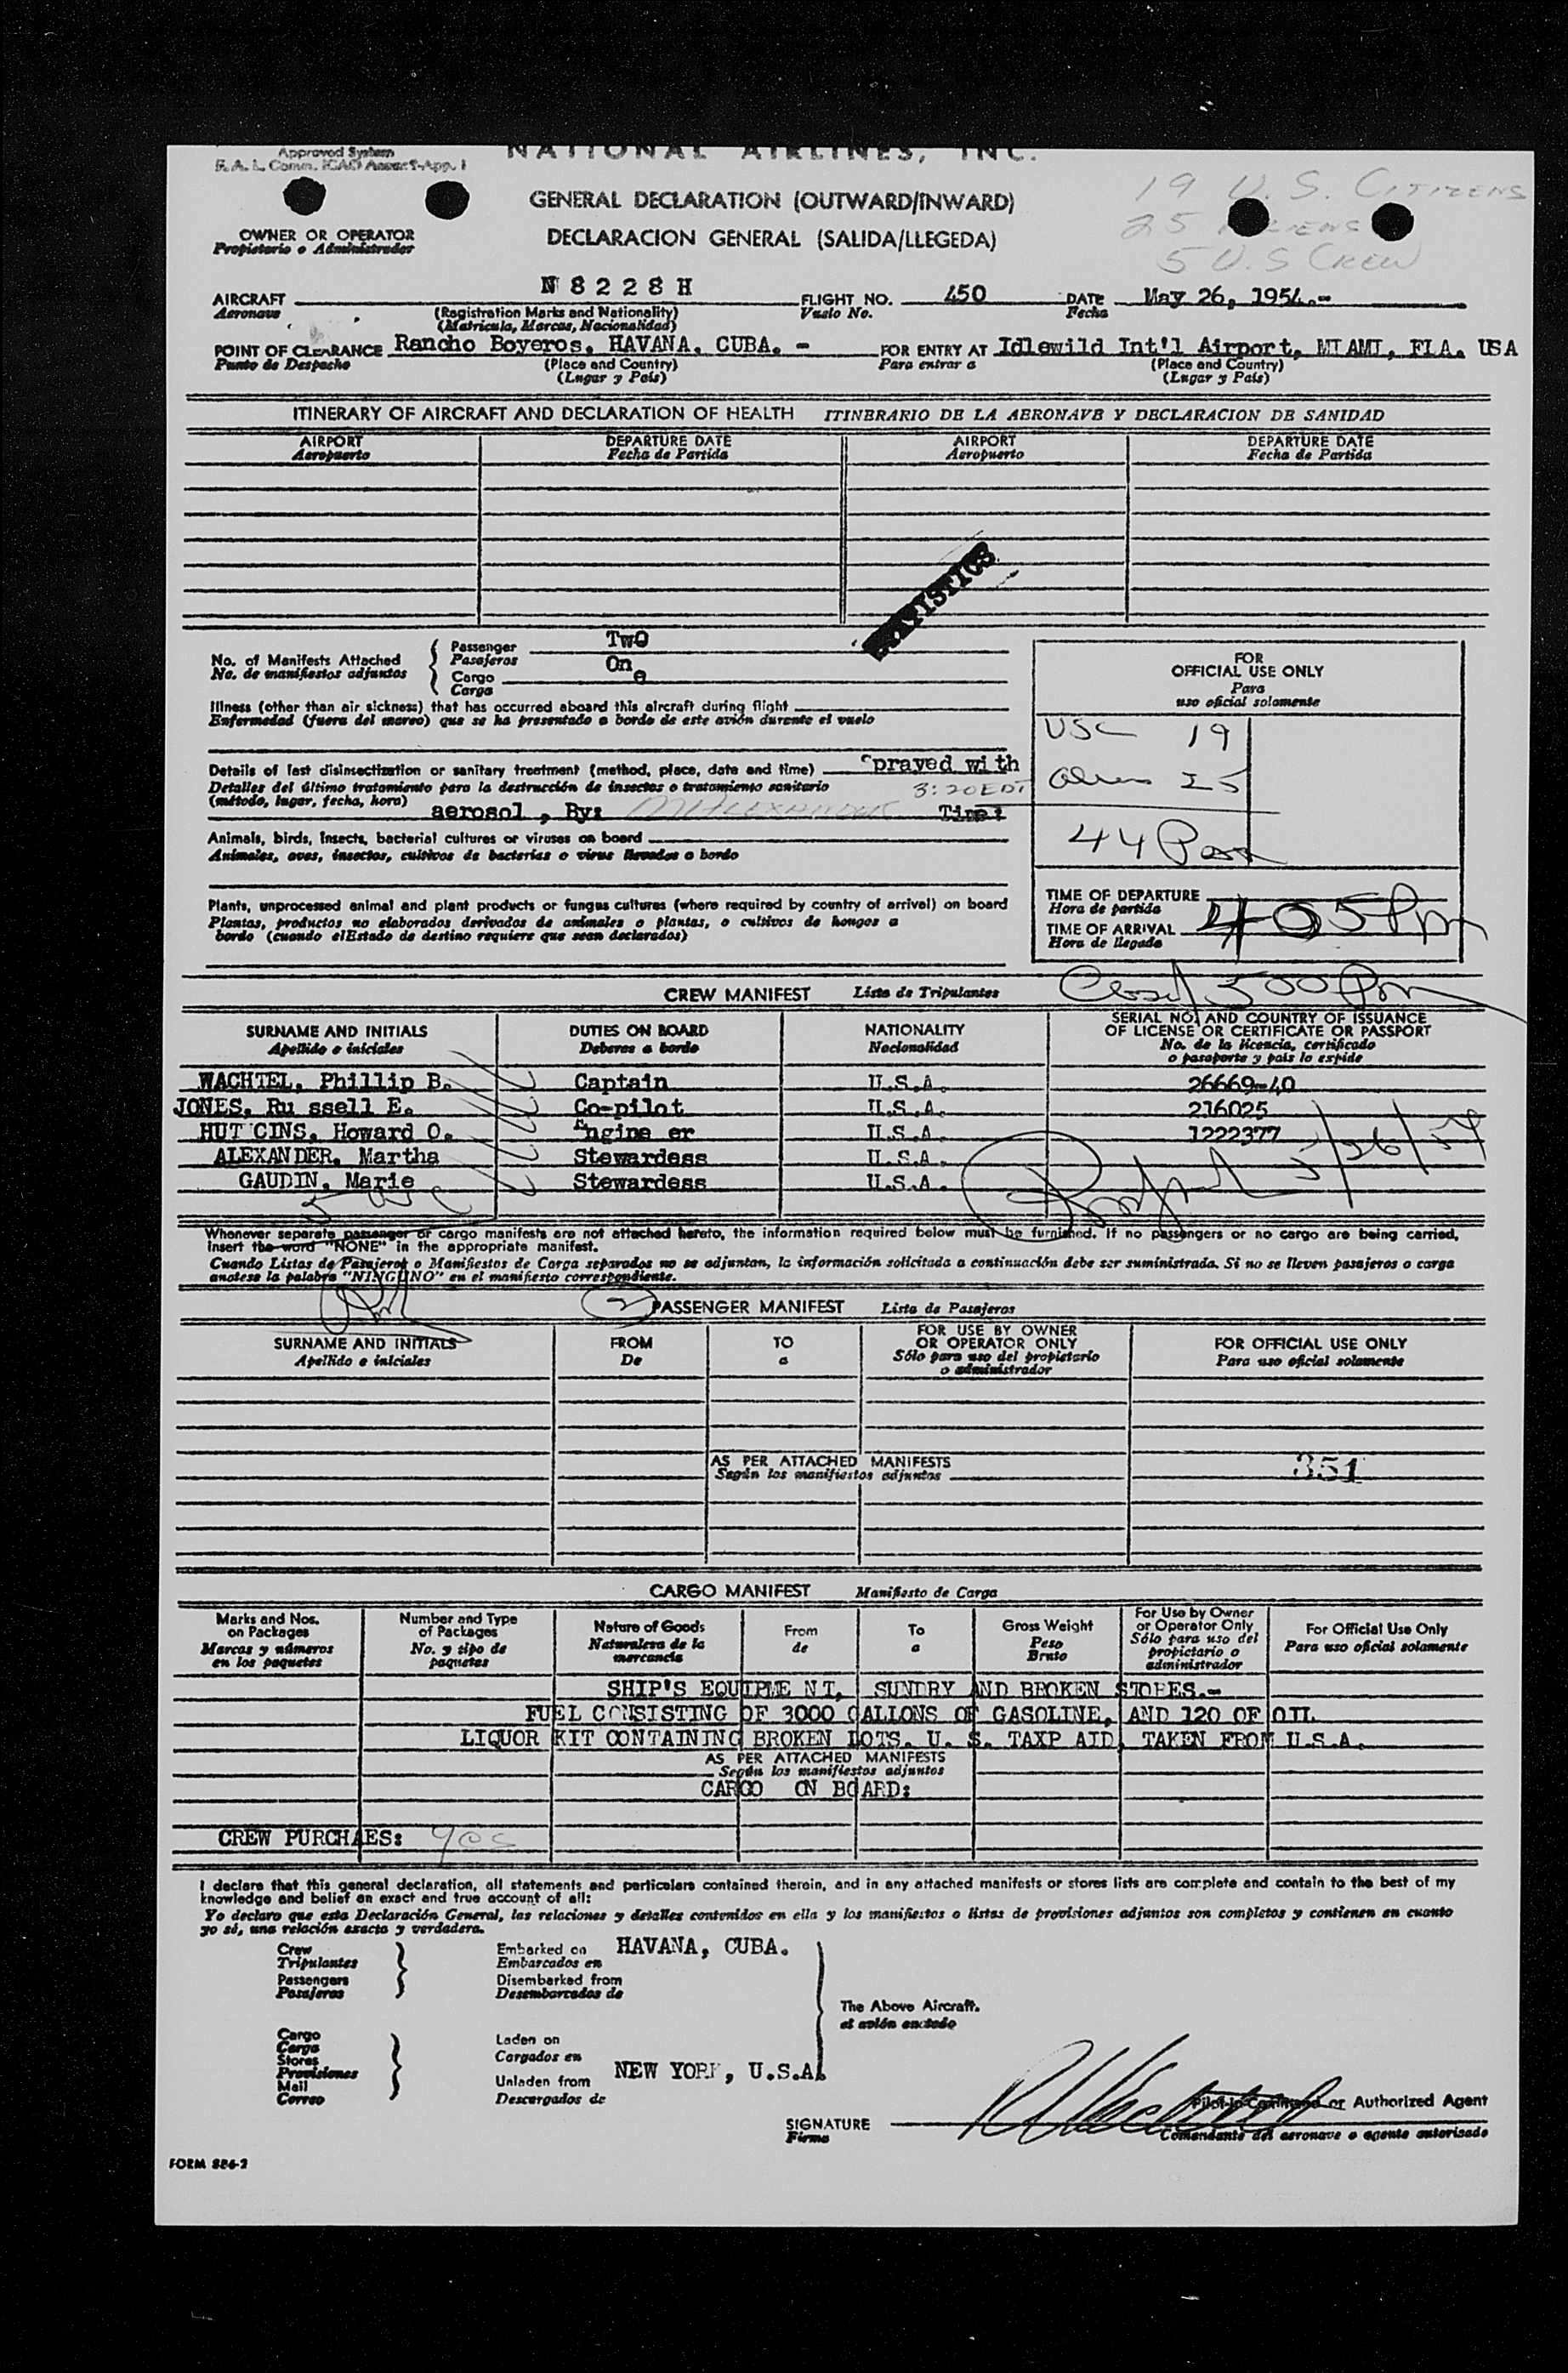 Approved System
F. A. L. Comm. ICAO Annex 9-App. 1
NATIONAL AIRLINES, INC.
GENERAL DECLARATION (OUTWARD/INWARD)
DECLARACION GENERAL (SALIDA/LLEGEDA)
19 U. S. CITIZENS
25 ALIENS
5 U.S CREW
OWNER OR OPERATOR
Propietario o Administrador
AIRCRAFT N 8 2 2 8 H FLIGHT NO. 450 DATE May 26, 1954.-
Aeronave (Registration Marks and Nationality) Vuelo No. Fecha
(Matricula, Marcas, Nacionalidad)
POINT OF CLEARANCE Rancho Boyeros, HAVANA, CUBA. - FOR ENTRY AT Idlewild Int'l Airport, MIAMI, FLA. USA
Punto de Despacho (Place and Country) Para entrar a (Place and Country)
(Lugar y País) (Lugar y País)
ITINERARY OF AIRCRAFT AND DECLARATION OF HEALTH ITINERARIO DE LA AERONAVE Y DECLARACION DE SANIDAD
AIRPORT DEPARTURE DATE AIRPORT DEPARTURE DATE
Aeropuerto Fecha de Partida Aeropuerto Fecha de Partida
STATISTICS
No. of Manifests Attached Passenger TwO
No. de manifiestos adjuntos Pasajeros
Cargo One
Carga
Illness (other than air sickness) that has occurred aboard this aircraft during flight
Enfermedad (fuera del mareo) que se ha presentado a bordo de este avión durante el vuelo
Details of last disinsectization or sanitary treatment (method, place, date and time) Sprayed with
Detalles del último tratamiento para la destrucción de insectos o tratamiento sanitario 3:20 EDT
(método, lugar, fecha, hora) aerosol , By: M ALEXANDER Time:
Animals, birds, insects, bacterial cultures or viruses on board
Animales, aves, insectos, cultivos de bacterias o virus llevados a bordo
Plants, unprocessed animal and plant products or fungus cultures (where required by country of arrival) on board
Plantas, productos no elaborados derivados de animales o plantas, o cultivos de hongos a
bordo (cuando elEstado de destino requiere que sean declarados)
FOR
OFFICIAL USE ONLY
Para
uso oficial solamente
USC 19
Aliens 25
44 Pass
TIME OF DEPARTURE
Hora de partida
405 Pm
TIME OF ARRIVAL
Hora de llegada
Closed 500 Pm
CREW MANIFEST Lista de Tripulantes
SURNAME AND INITIALS DUTIES ON BOARD NATIONALITY SERIAL NO. AND COUNTRY OF ISSUANCE
OF LICENSE OR CERTIFICATE OR PASSPORT
Apellido e iniciales Deberes a bordo Nacionalidad No. de la licencia, certificado
o pasaporte y país lo expide
WACHTEL, Phillip B. Captain U.S.A. 26669-40
JONES, Ru ssell E. Co-pilot U.S.A. 216025
HUT CINS, Howard O. Engine er U.S.A. 1222377
ALEXANDER, Martha Stewardess U.S.A.
GAUDIN, Marie Stewardess U.S.A.
5/26/54
Whenever separate passenger or cargo manifests are not attached hereto, the information required below must be furnished. If no passengers or no cargo are being carried,
insert the word "NONE" in the appropriate manifest.
Cuando Listas de Pasajeros o Manifiestos de Carga separados no se adjuntan, la información solicitada a continuación debe ser suministrada. Si no se lleven pasajeros o carga
anotese la palabra "NINGUNO" en el manifiesto correspondiente.
2 PASSENGER MANIFEST Lista de Pasajeros
SURNAME AND INITIALS FROM TO FOR USE BY OWNER
OR OPERATOR ONLY FOR OFFICIAL USE ONLY
Apellido e iniciales De a Sólo para uso del propietario
o administrador Para uso oficial solamente
AS PER ATTACHED MANIFESTS
Según los manifiestos adjuntos
351
CARGO MANIFEST Manifiesto de Carga
Marks and Nos. on Packages Number and Type of Packages Nature of Goods From To Gross Weight For Use by Owner or Operator Only For Official Use Only
Marcas y números en los paquetes No. y tipo de paquetes Naturaleza de la mercancía de a Peso Bruto Sólo para uso del propietario o administrador Para uso oficial solamente
SHIP'S EQUIPME NT, SUNDRY AND BROKEN STORES.-
FUEL CONSISTING OF 3000 GALLONS OF GASOLINE, AND 120 OF OIL
LIQUOR KIT CONTAINING BROKEN LOTS. U. S. TAXP AID, TAKEN FROM U.S.A.
AS PER ATTACHED MANIFESTS
Según los manifiestos adjuntos
CARGO ON BOARD:
CREW PURCHAES: yes
I declare that this general declaration, all statements and particulars contained therein, and in any attached manifests or stores lists are complete and contain to the best of my
knowledge and belief an exact and true account of all:
Yo declaro que esta Declaración General, las relaciones y detalles contenidos en ella y los manifiestos o listas de provisiones adjuntos son completos y contienen en cuanto
yo sé, una relación exacta y verdadera.
Crew Embarked on HAVANA, CUBA.
Tripulantes Embarcados en
Passengers Disembarked from
Pasajeros Desembarcados de
The Above Aircraft.
el avión anotado
Cargo
Carga Laden on
Stores Cargados en
Provisiones
Mail Unladen from NEW YORK, U.S.A.
Correo Descargados de
Pilot-in-Command or Authorized Agent
SIGNATURE
Firma
Comandante del aeronave o agente autorizado
FORM 886-2